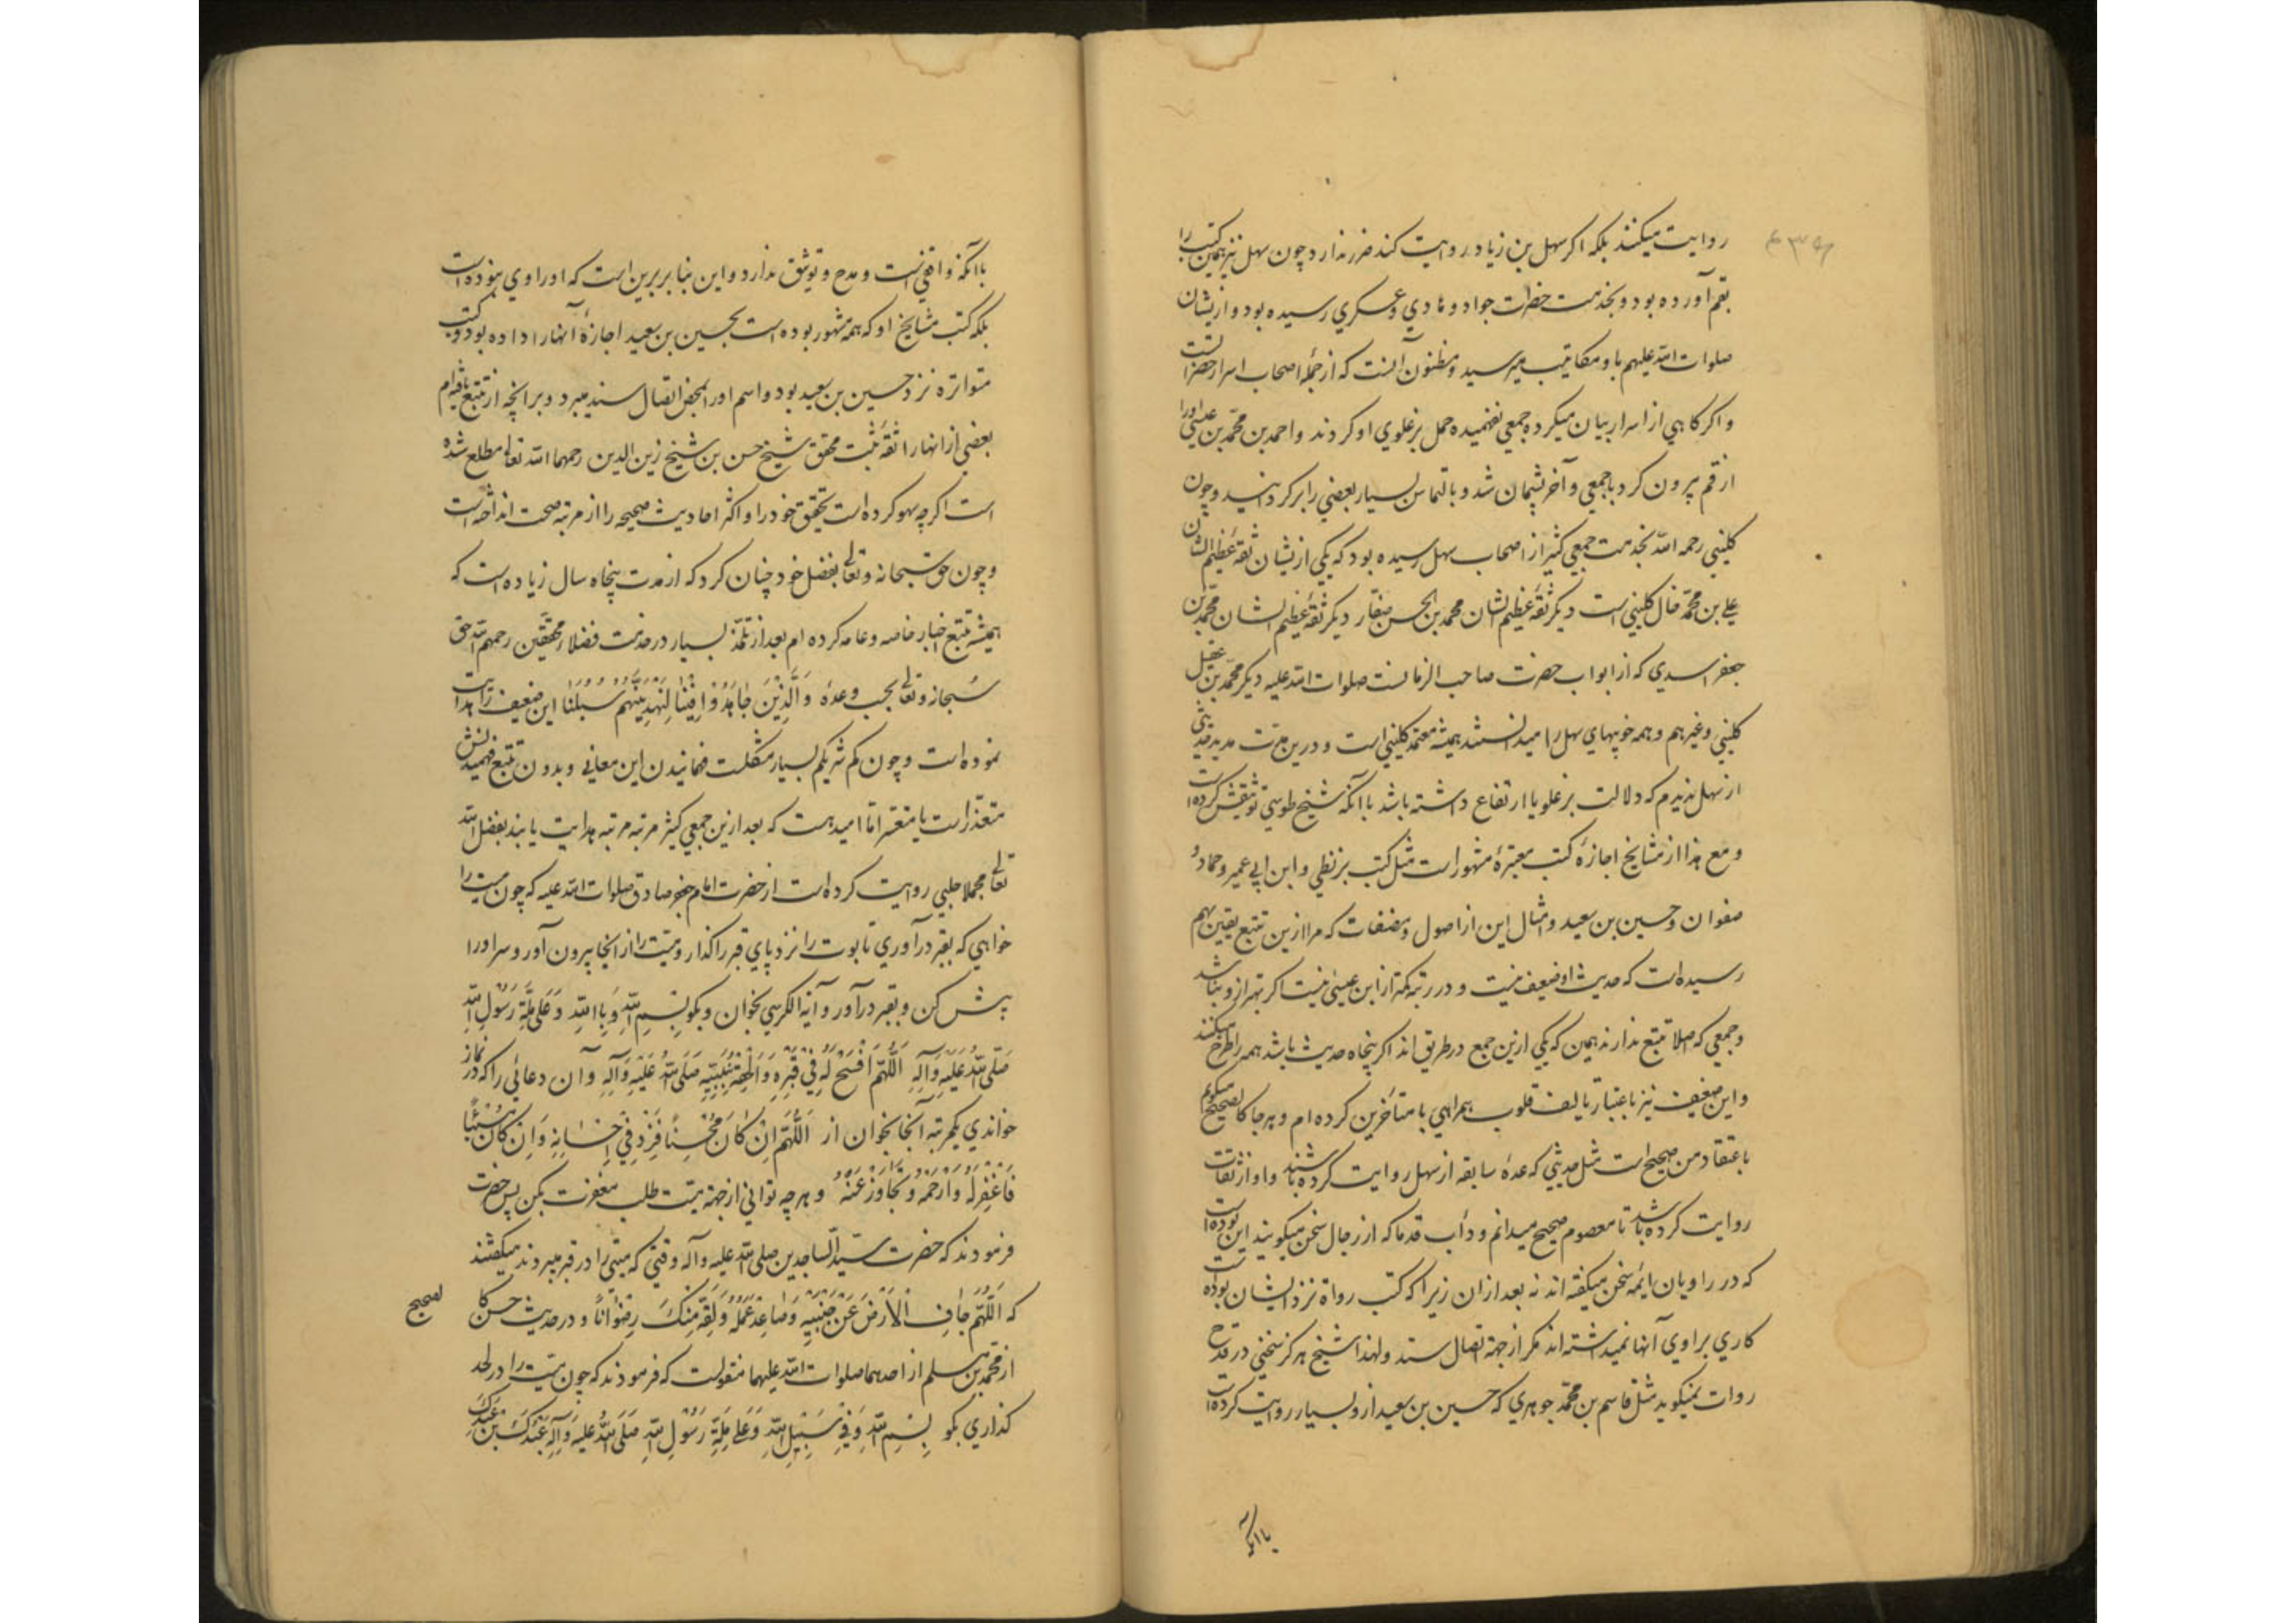 روایت میکنند بلکه اگر سهل بن زیاد روایت کند ضرر ندارد چون سهل نیز همین کتب را
بقم آورده بود و بخدمت حضرات جواد و هادی و عسکری رسیده بود و ازیشان
صلوات الله علیهم باو مکاتیب میرسید و مظنون آنست که از جمله اصحاب اسرار حضراتست
و اگر گاهی از اسرار بیان میکرده جمعی نفهمیده حمل بر غلوی او کردند و احمد بن محمد بن عیسی او را
از قم بیرون کرد با جمعی و آخر پشیمان شد و بالتماس بسیار بعضی را برگردانید و چون
کلینی رحمه الله بخدمت جمعی کثیر از اصحاب سهل رسیده بود که یکی ازیشان ثقه عظیم الشان
علی بن محمد خال کلینی است دیگر ثقه عظیم الشان محمد بن الحسن صفار دیگر ثقه عظیم الشان محمد بن
جعفر اسدی که از ابواب حضرت صاحب الزمانست صلوات الله علیه دیگر محمد بن عقیل
کلینی و غیر هم و همه خوبیهای سهل را میدانستند همیشه معتمد کلینی است و درین مدت مدید حدیثی
از سهل ندیدم که دلالت بر غلو یا ارتفاع داشته باشد با آنکه شیخ طوسی توثیقش کرده است
و مع هذا از مشایخ اجازه کتب معتبره مشهور است مثل کتب بزنطی و ابن ابی عمیر و حماد و
صفوان و حسین بن سعید و امثال این از اصول و مصنفات که مرا ازین تتبع یقین بهم
رسیده است که حدیث او ضعیف نیست و در رتبه کمتر از ابن عیسی نیست اگر بهتر ازو نباشد
و جمعی که اصلا تتبع ندارند همین که یکی ازین جمع در طریق اند اگر پنجاه حدیث باشد همه را طرح میکنند
و این ضعیف نیز باعتبار تالیف قلوب همراهی با متأخرین کرده ام و هر جا کالصحیح میگویم
باعتقاد من صحیح است مثل حدیثی که عده سابقه از سهل روایت کرده باشند و او از ثقات
روایت کرده باشد تا معصوم صحیح میدانم و دأب قدما که از رجال سخن میگویند این بوده است
که در راویان ائمه سخن میگفته اند نه بعد ازان زیرا که کتب رواة نزد ایشان بوده است
کاری براوی آنها نمیداشته اند مگر از جهة اتصال سند و لهذا شیخ هرگز سخنی در قدح
روات نمیگوید مثل قاسم بن محمد جوهری که حسین بن سعید ازو بسیار روایت کرده است
با آنکه
با آنکه واقفی است و مدح و توثیق ندارد و این بنا برین است که او راوی نبوده است
بلکه کتب مشایخ او که همه مشهور بوده است بحسین بن سعید اجازه آنها را داده بود و کتب
متواتره نزد حسین بن سعید بود و اسم او را لمحض اتصال سند میبرد و بر آنچه از تتبع یافته ام
بعضی از انها را ثقه ثبت محقق شیخ حسن بن شیخ زین الدین رحمهما الله تعالی مطلع شده
است اگر چه سهو کرده است تحقیق خود را و اکثر احادیث صحیحه را از مرتبه صحت انداخته است
و چون حق سبحانه و تعالی بفضل خود چنان کرد که از مدت پنجاه سال زیاده است که
همیشه تتبع اخبار خاصه و عامه کرده ام بعد از تلمذ بسیار در خدمت فضلاء محققین رحمهم الله حق
سبحانه و تعالی بحسب وعده وَالَّذِینَ جَاهَدُوا فِینَا لَنَهْدِیَنَّهُمْ سُبُلَنَا این ضعیف را هدایت
نموده است و چون کم شریکم بسیار مشکلست فهمانیدن این معانی و بدون تتبع فهمیدنش
متعذر است یا متعسر اما امید هست که بعد ازین جمعی کثیر مرتبه مرتبه هدایت یابند بفضل الله
تعالی مجملا حلبی روایت کرده است از حضرت امام جعفر صادق صلوات الله علیه که چون میت را
خواهی که بقبر درآوری تابوت را نزد پای قبر را گذار و میت را از آنجا بیرون آور و سر او را
پیش کن و بقبر درآور و آیة الکرسی بخوان و بگو بِسْمِ اللهِ وَ بِاللهِ وَ عَلی مِلَّةِ رَسُولِ اللهِ
صَلَّی اللهُ عَلَیْهِ وَآلِهِ اَللّهُمَّ افْسَحْ لَهُ فِی قَبْرِهِ وَاَلْحِقْهُ بِنَبِیِّهِ صَلَّی اللهُ عَلَیْهِ وَآلِهِ و آن دعائی را که در نماز
خواندی یکمرتبه آنجا بخوان از اَللّهُمَّ اِنْ کَانَ مُحْسِناً فَزِدْ فِی اِحْسَانِهِ وَ اِنْ کَانَ مُسِیئاً
فَاغْفِرْ لَهُ وَارْحَمْهُ وَتَجَاوَزْ عَنْهُ و هر چه توانی از جهة میت طلب مغفرت بکن پس حضرت
فرمودند که حضرت سید الساجدین صلی الله علیه و آله وقتی که میتی را در قبر میبردند میگفتند
که اَللّهُمَّ جَافِ الْاَرْضَ عَنْ جَنْبَیْهِ وَ صَاعِدْ عَمَلَهُ وَ لَقِّهِ مِنْکَ رِضْوَاناً و در حدیث حسن کا
لصحیح
از محمد بن مسلم از احدهما صلوات الله علیهما منقولست که فرمودند که چون میت را در لحد
گذاری بگو بِسْمِ اللهِ وَ فِی سَبِیلِ اللهِ وَ عَلی مِلَّةِ رَسُولِ اللهِ صَلَّی اللهُ عَلَیْهِ وَآلِهِ عَبْدُکَ بْنُ عَبْدِکَ